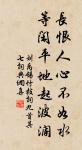 長恨人心不如水
等閑平地起波瀾
劉禹錫竹枝詞九首其
七詞典調喜